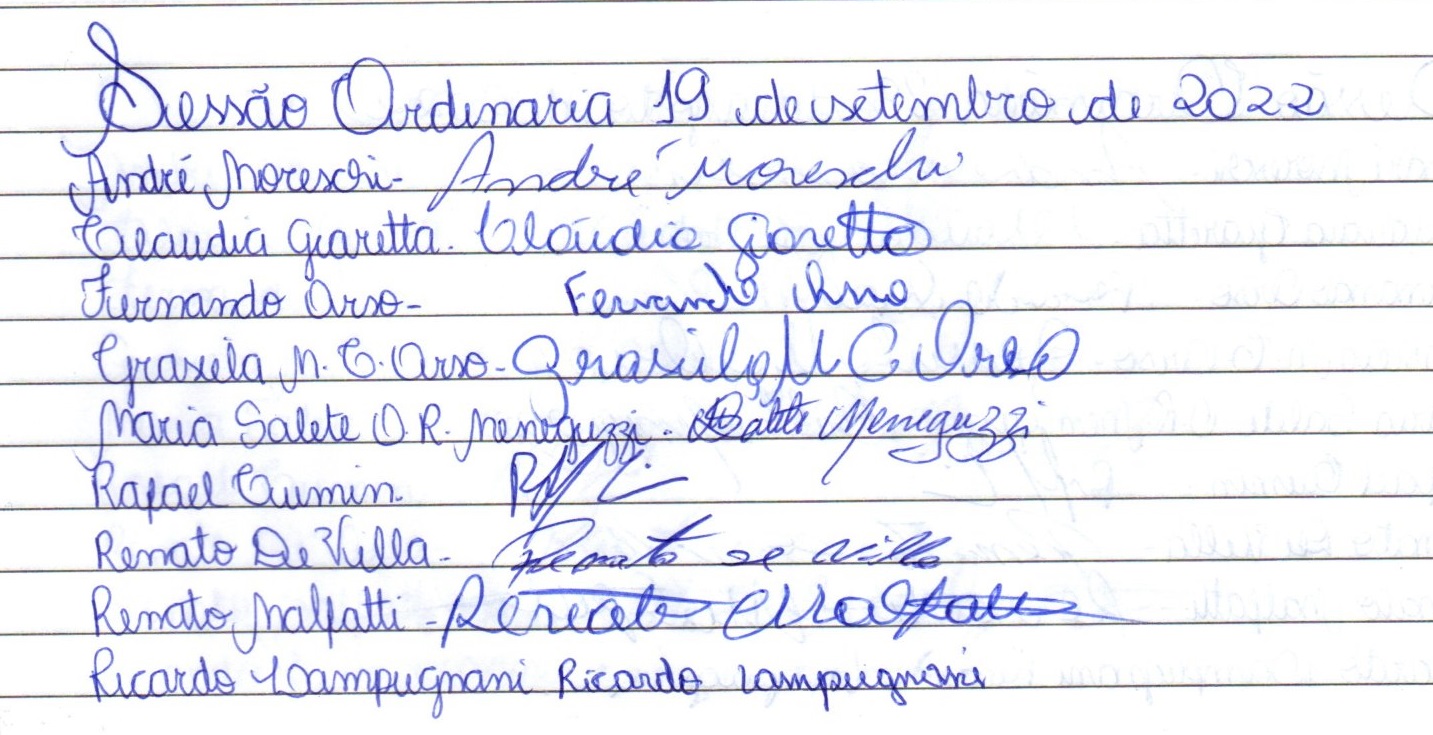 Sessão Ordinaria 19 de setembro de 2022
André Moreschi - André Moreschi
Claudia Giaretta. Claúdia Giaretta
Fernando Orso - Fernando Orso
Grasiela M. C. Orso - Grasiela M C Orso
Maria Salete O R. Meneguzzi - Salete Meneguzzi
Rafael Cumin.
Renato De Villa - Renato De Villa
Renato Malfatti - Renato Malfatti
Ricardo Zampugnani Ricardo Zampugnani